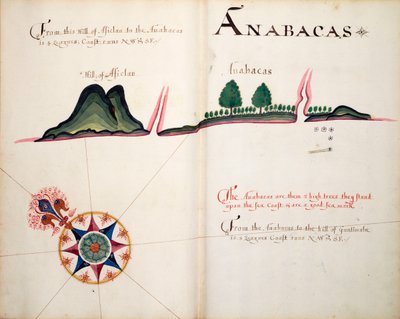 From this Hill of Assiclan to the Anabacas
is 4 Leagues: Coast runs N.W. & S.E.
ANABACAS
Hill of Assiclan
Anabacas
The Anabacas are them 2 high trees they stand
upon the Sea Coast & are a good sea mark
From the Anabacas to the Hill of
is 2 Leagues Coast runs N.W. & S.E.